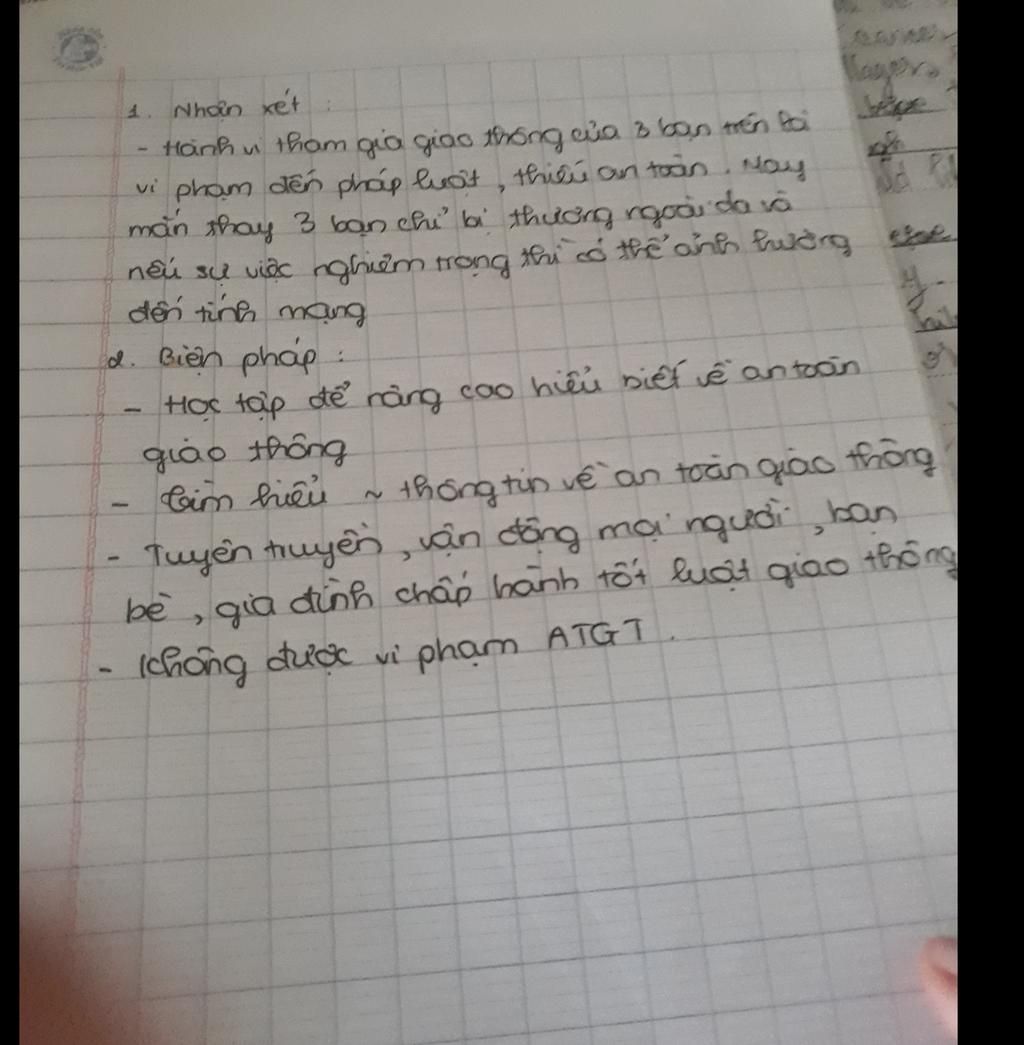 1. Nhận xét :
- Hành vi tham gia giao thông của 3 bạn trên đã
vi phạm đến pháp luật, thiếu an toàn. May
mắn thay 3 bạn chỉ bị thương ngoài da và
nếu sự việc nghiêm trọng thì có thể ảnh hưởng
đến tính mạng
2. Biện pháp :
- Học tập để nâng cao hiểu biết về an toàn
giao thông
- tìm hiểu ~ thông tin về an toàn giao thông
- Tuyên truyền, vận động mọi người, bạn
bè, gia đình chấp hành tốt luật giao thông
- Không được vi phạm ATGT.